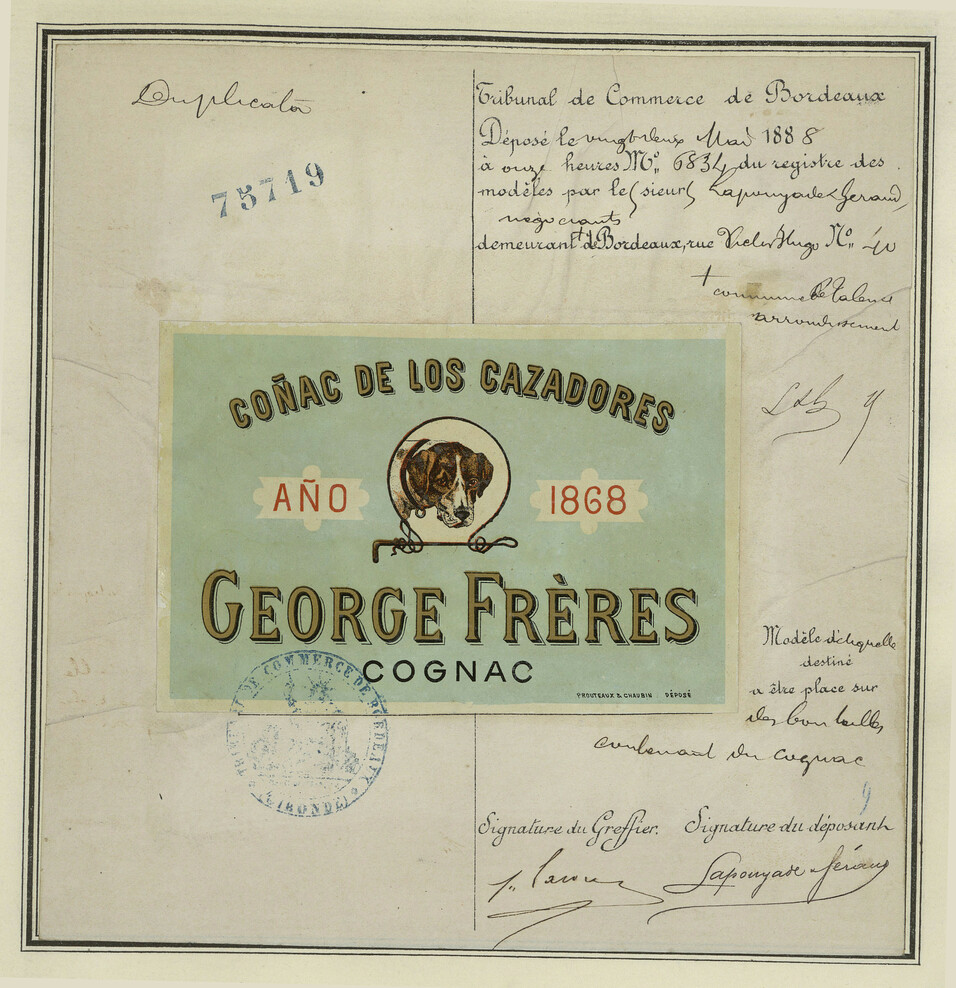 Duplicata
75719
Tribunal de Commerce de Bordeaux
Déposé le vingt deux Mai 1888
à onze heures No. 6834 du registre des
modèles par les sieurs Lapouyade Géraud,
négociants
demeurant à Bordeaux, rue Victor Hugo No. 40
+ commune de Talence
arrondissement
COÑAC DE LOS CAZADORES
AÑO 1868
GEORGE FRÈRES
COGNAC
PROUTEAUX & CHAUBIN DÉPOSÉ
TRIBUNAL DE COMMERCE DE BORDEAUX
(GIRONDE)
Modèle d'étiquette
destiné
a être placé sur
des bouteilles
contenant du cognac
Signature du Greffier. Signature du déposant
Lapouyade Géraud